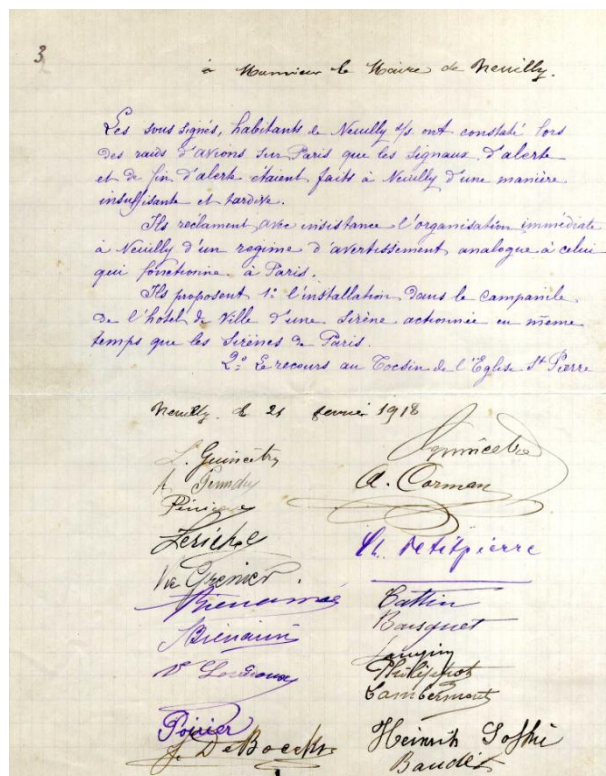 3
à Monsieur le Maire de Neuilly.
Les sous signés, habitants de Neuilly s/s. ont constaté lors
des raids d'avions sur Paris que les signaux d'alerte
et de fin d'alerte étaient faits à Neuilly d'une manière
insuffisante et tardive.
Ils réclament avec insistance l'organisation immédiate
à Neuilly d'un régime d'avertissement analogue à celui
qui fonctionne à Paris.
Ils proposent 1º l'installation dans le Campanile
de l'hôtel de Ville d'une Sirène actionnée en même
temps que les Sirènes de Paris.
2º Le recours au Tocsin de l'Eglise St Pierre
Neuilly, le 21 février 1918
A. Corman
Leriche
Ch. Petitpierre
Vve Grenier
Bienaimé
Cattin
Bienaimé
Bousquet
Philippot
Cambermont
Poirier
J. DeBoeck
Heinrich Sophie
Baudet